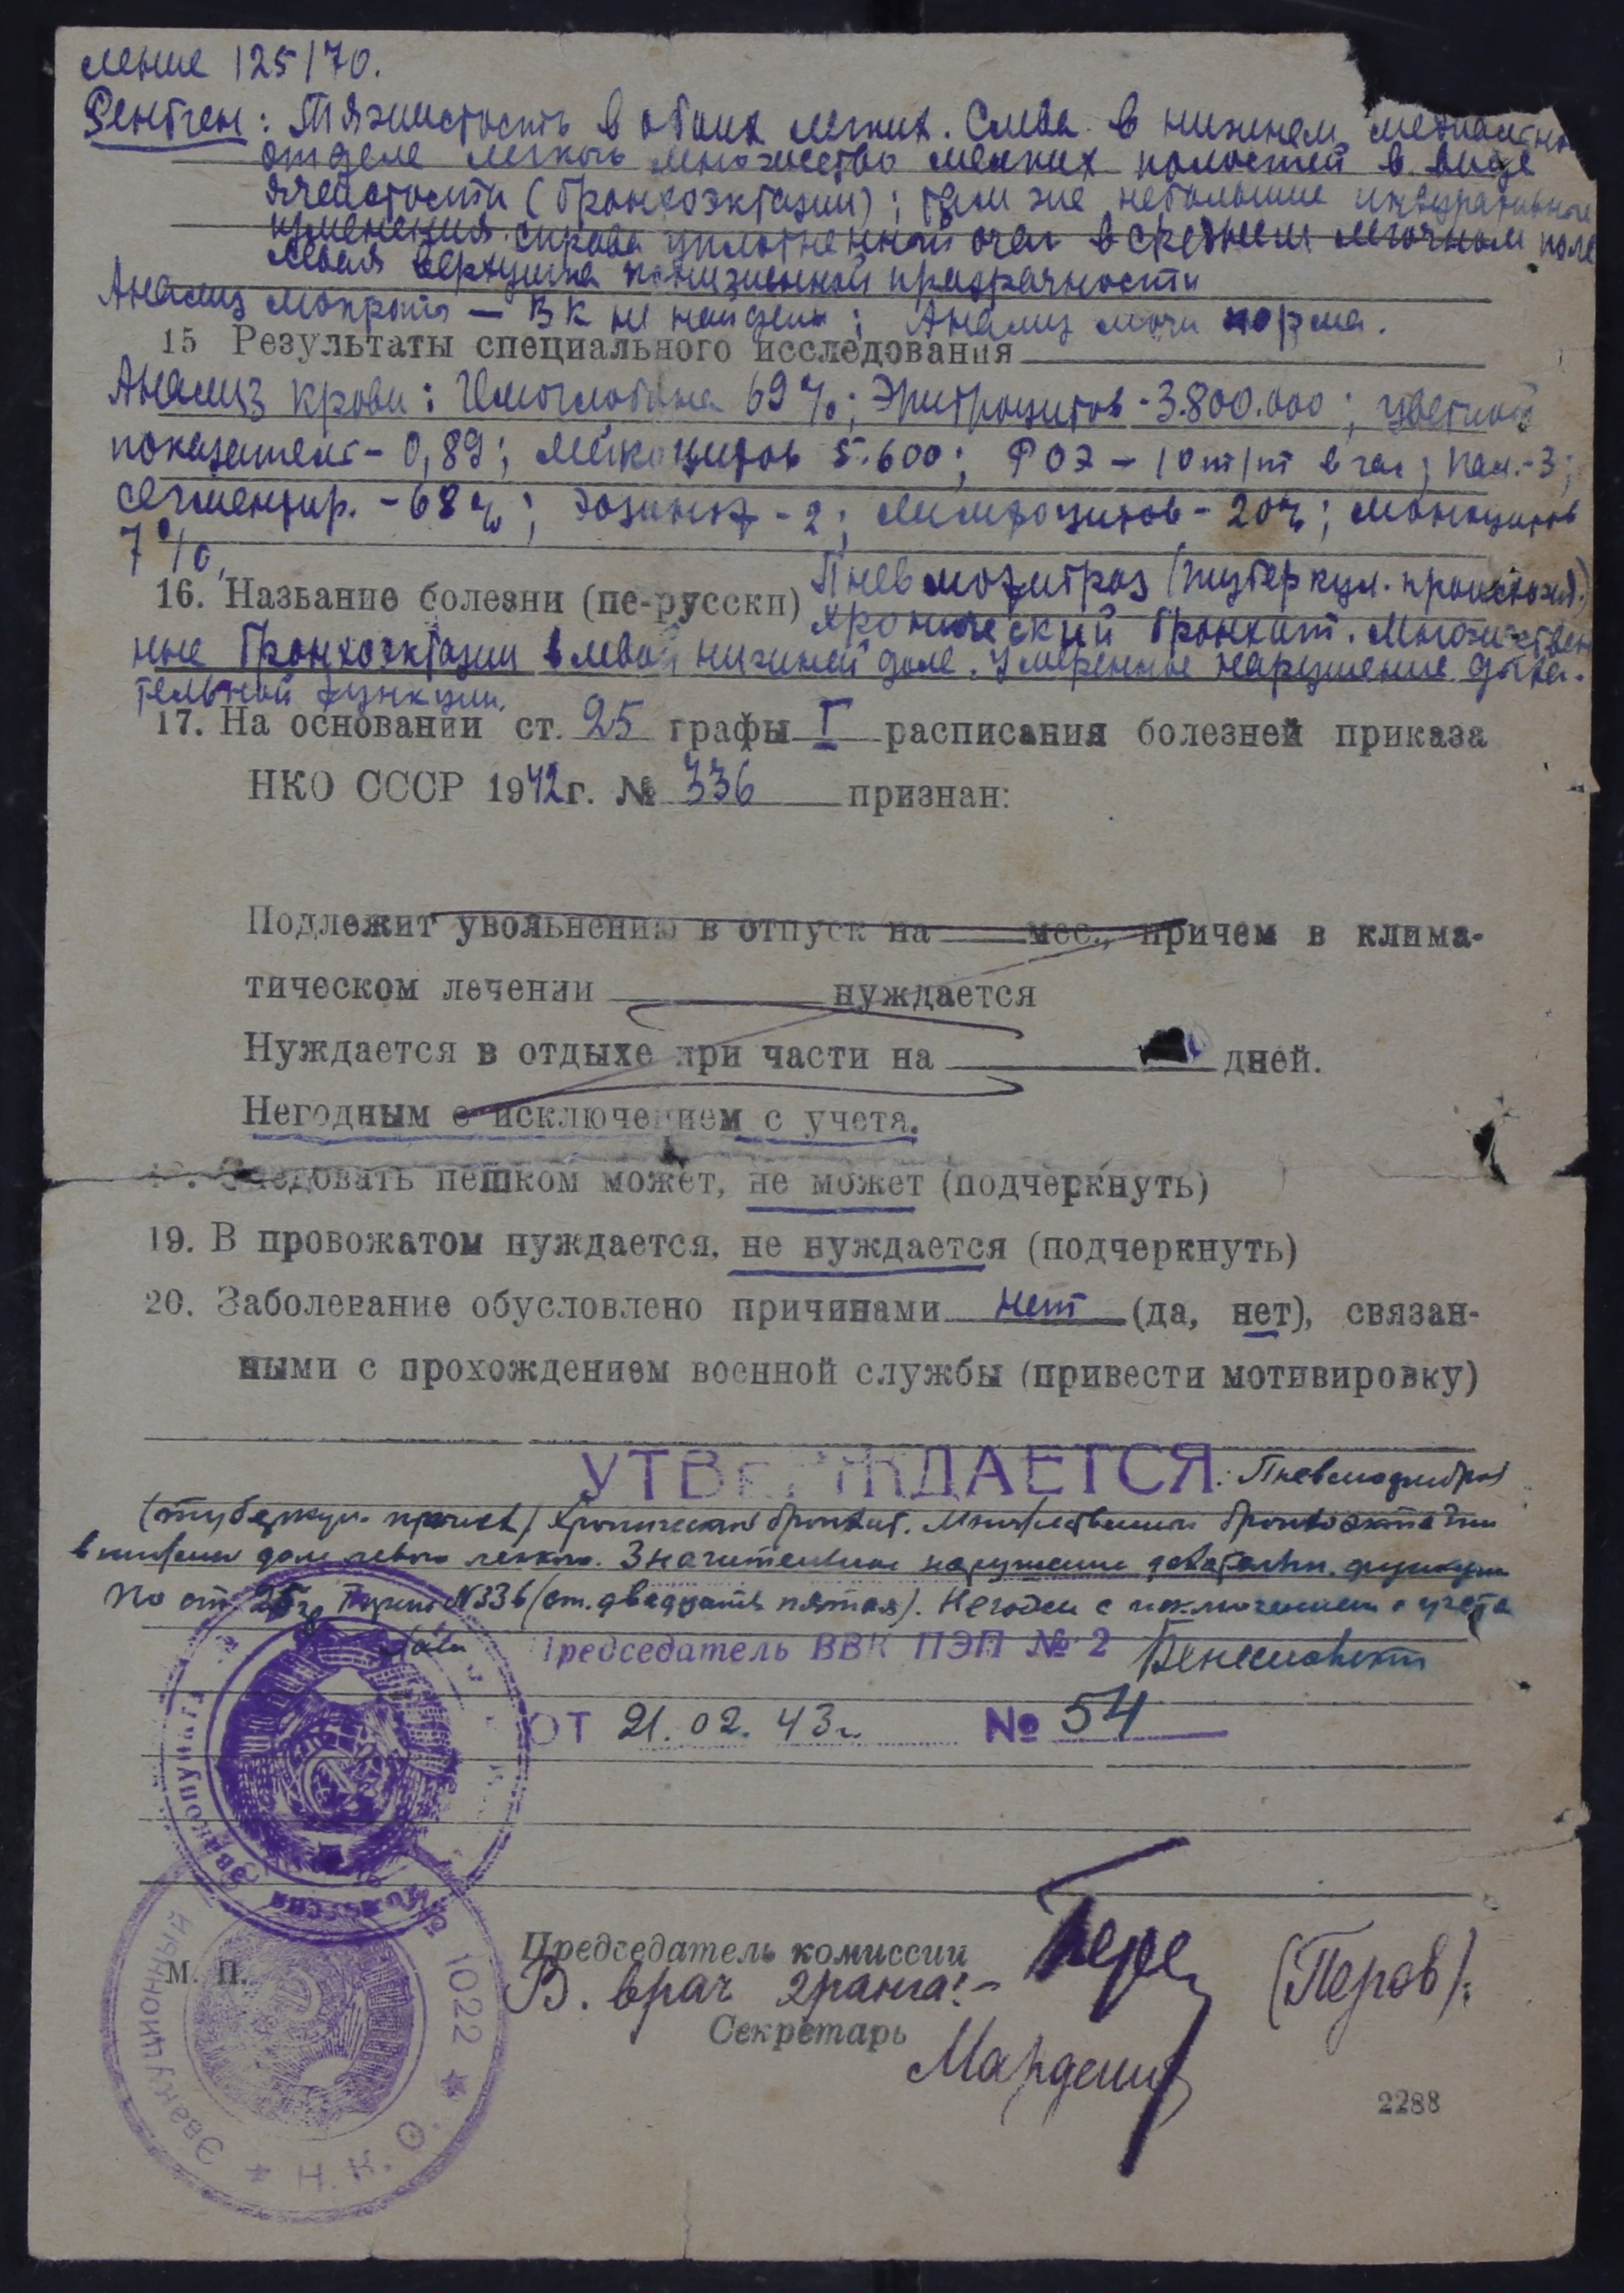 ление 125/70.
Рентген: Тяжистость в обоих легких. Слева в нижнем медиальном
отделе легкого множество мелких полостей в виде
ячеистости (бронхоэктазии); там же небольшие индуративные
изменения. справа уплотненный очаг в среднем легочном поле
левая верхушка пониженной прозрачности
Анализ мокроты — ВК не найдены; Анализ мочи норма.
15 Результаты специального исследования
Анализ крови: Гемоглобина 69%; Эритроцитов - 3.800.000; цветной
показатель - 0,89; Лейкоцитов 5.600; РОЭ - 10 m/m в час; пал. - 3;
сегментир. - 68%; эозиноф - 2; Лимфоцитов - 20%; моноцитов
7%.
16. Название болезни (по-русски) Пневмофиброз (туберкул. происхожд.)
хронический бронхит. Множествен
ные бронхоэктазии в левой нижней доле. Умеренное нарушение дыха-
тельной функции.
17. На основании ст. 25 графы I расписания болезней приказа
НКО СССР 1942г. № 336 признан:
Подлежит увольнению в отпуск на мес., причем в клима-
тическом лечении нуждается
Нуждается в отдыхе при части на дней.
Негодным с исключением с учета.
Следовать пешком может, не может (подчеркнуть)
19. В провожатом нуждается, не нуждается (подчеркнуть)
20. Заболевание обусловлено причинами нет (да, нет), связан-
ными с прохождением военной службы (привести мотивировку)
УТВЕРЖДАЕТСЯ: Пневмофиброз
(туберкул. происх) Хронический бронхит. Множественные бронхоэктазии
в нижней доле левого легкого. Значительное нарушение дыхательн. функции
По ст. 25 гр I пр. НКО №336 (ст. двадцать пятая). Негоден с исключением с учета
Председатель ВВК ПЭП № 2
ОТ 21.02.43г № 54
Эвакопункта
Комиссия
Председатель комиссии
м. п.
В. врач 2 ранга: - (Перов).
Секретарь
Эвакуационный
1022 ★
★ Н.К.О.
2288